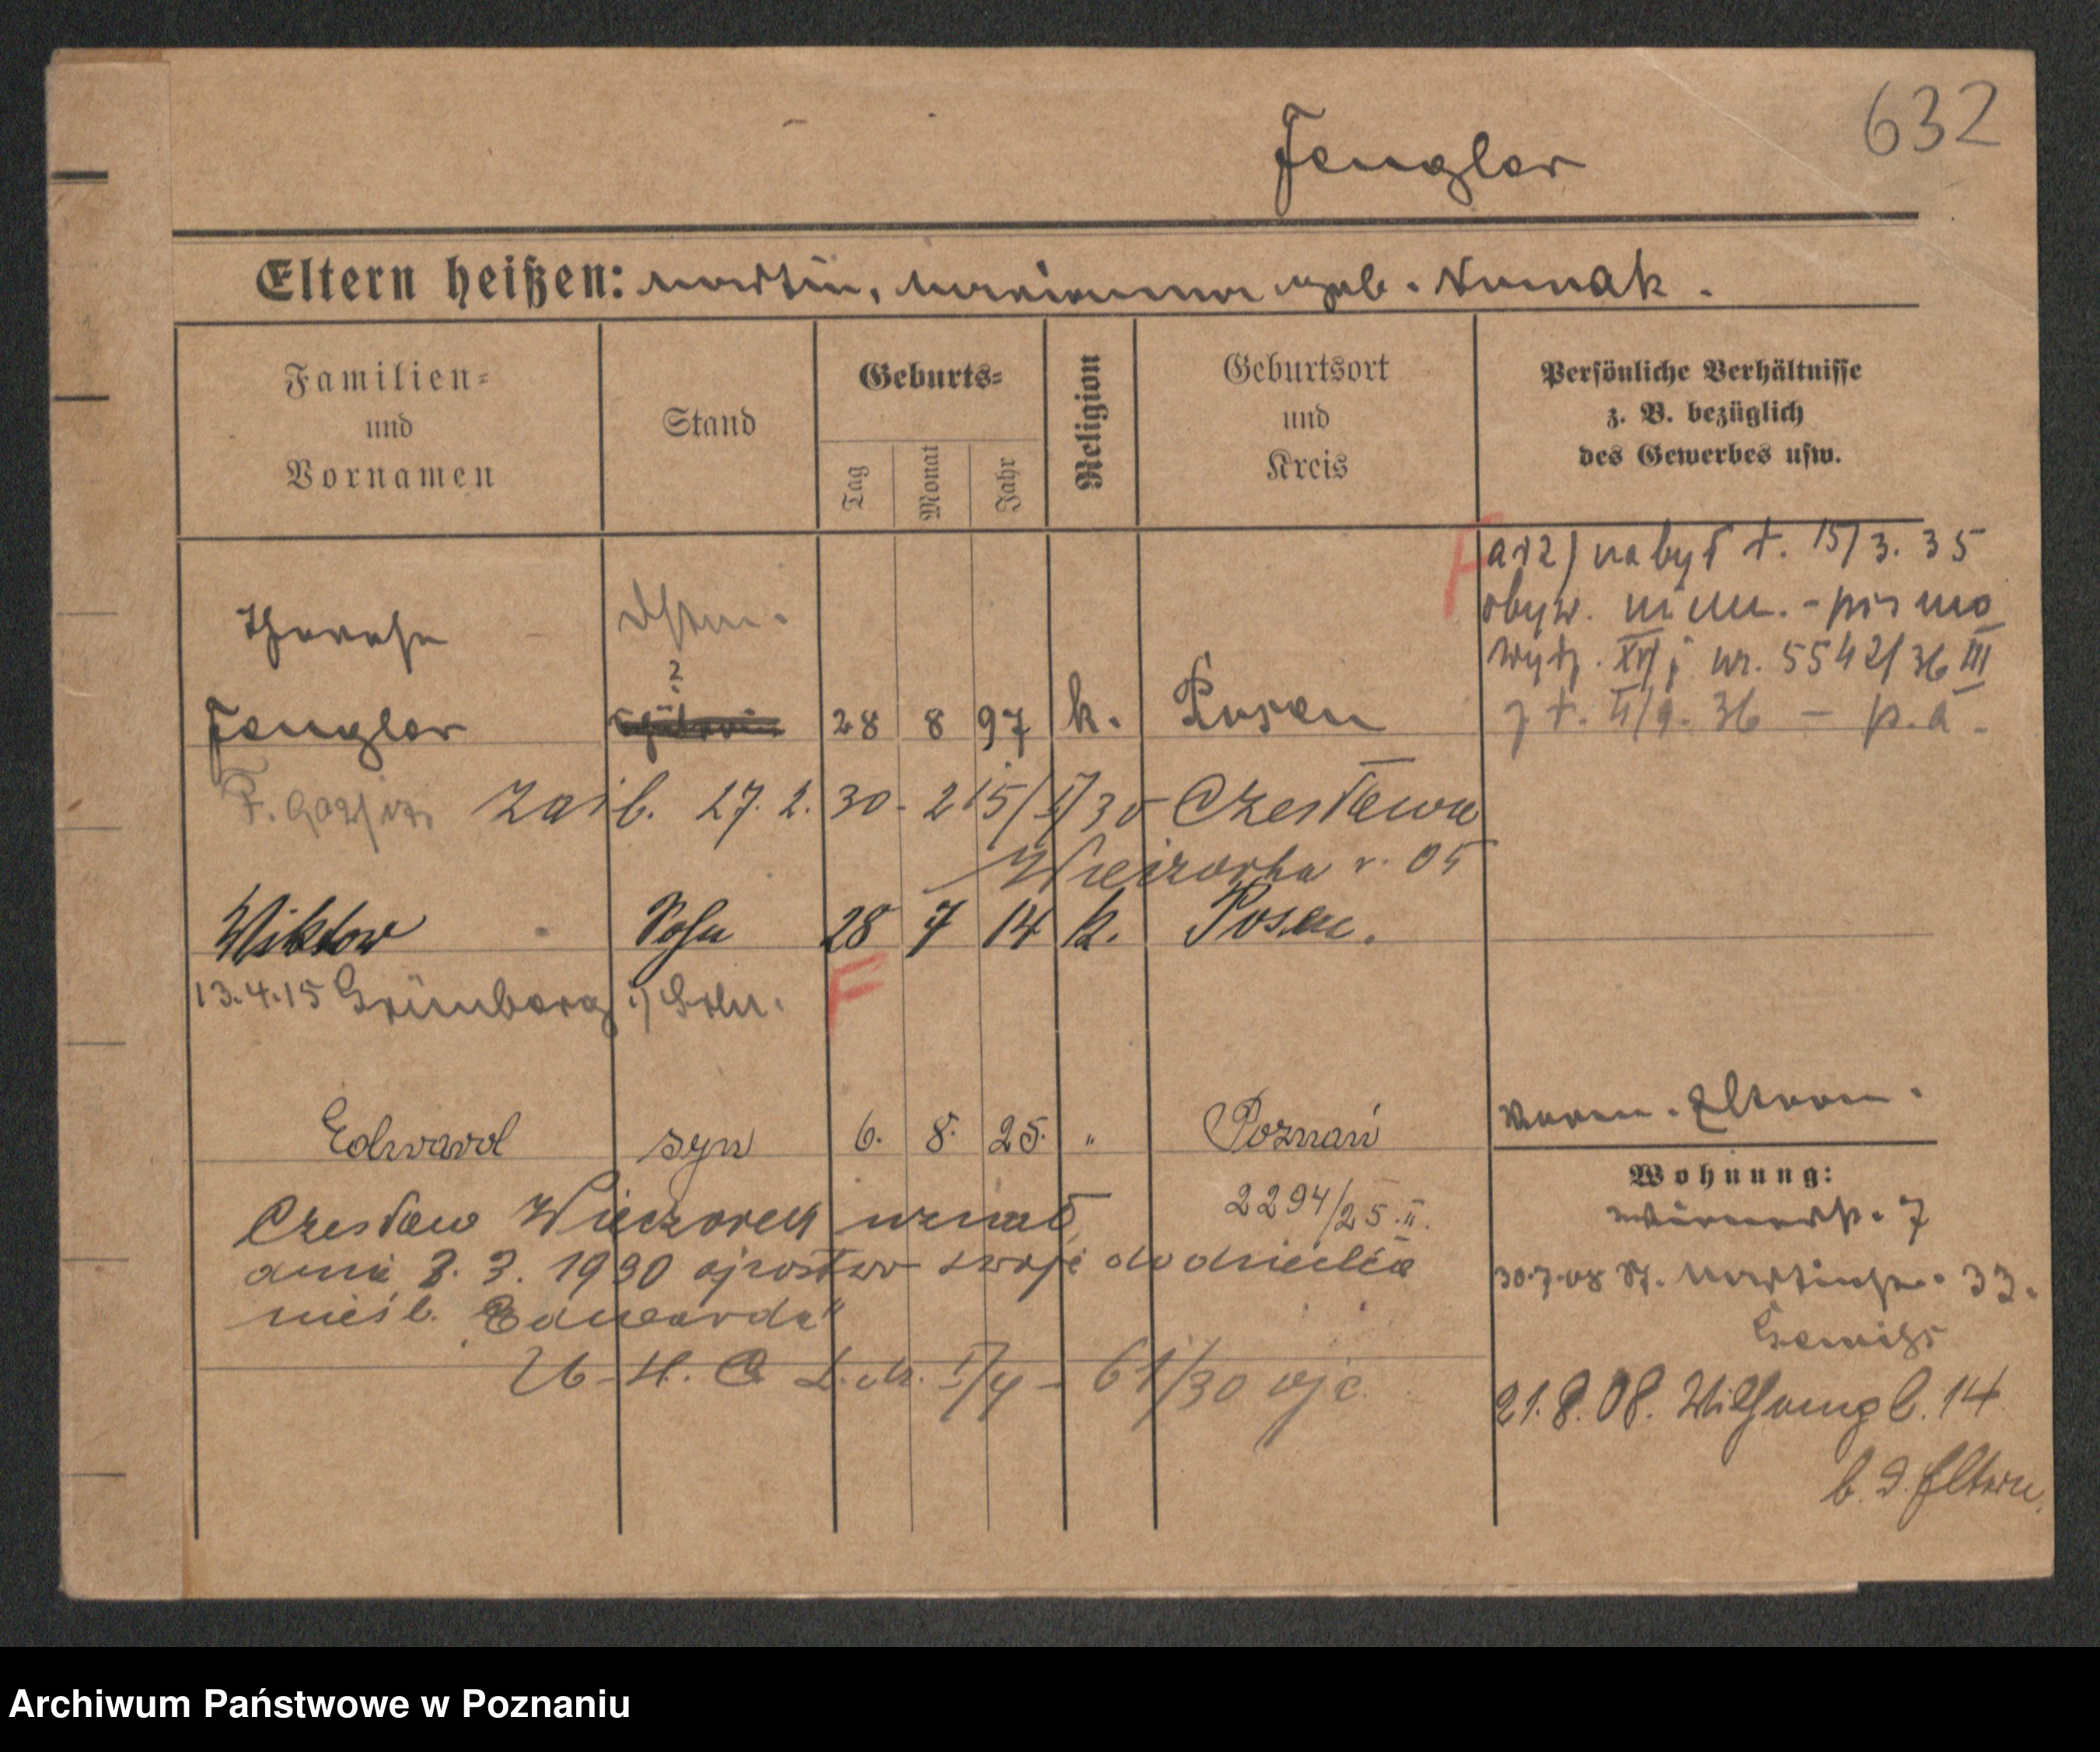 632
Fengler
Eltern heißen: Martin, Marianna geb. Nowak.
Familien-
und
Vornamen
Stand
Geburts-
Tag
Monat
Jahr
Religion
Geburtsort
und
Kreis
Persönliche Verhältnisse
z. B. bezüglich
des Gewerbes usw.
F
a i 2) nabył d. 15/3. 35
obyw. niem. - pismo
nr. 5542/36 III
z d. II/9. 36 - p.a.
Therese
?
Fengler 28 8 97 k. Posen
zaśl. 27. 2. 30 - 215/I/30 Czesława
Wieczorka r. 05
Wiktor Sohn 28 7 14 k. Posen.
13.4.15 Grünberg i/ Schl.
F
verm. Eltern.
Edward syn 6. 8. 25. " Poznań
2294/25.II.
Wohnung:
7
30.7.08 St. Martinstr. 33.
21.8.08. 14
b. d. Eltern.
Czesław Wieczorek uznał
dnia 3. 3. 1930 ojcostwo swoje do dziecka
nieśl. "Edwarda"
U.S.C. L.dz. I/4 - 61/30
Archiwum Państwowe w Poznaniu